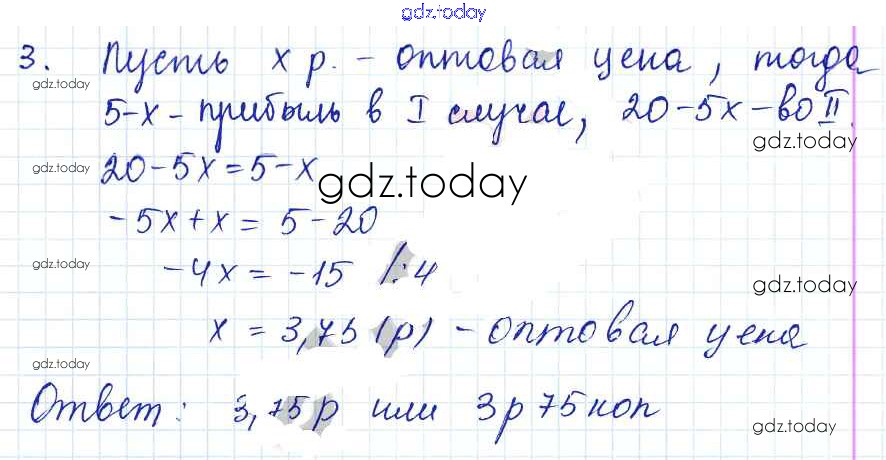 gdz.today
3. Пусть x р. - оптовая цена, тогда
gdz.today
5-x - прибыль в I случае, 20-5x - во II.
gdz.today
gdz.today
20-5x=5-x
gdz.today
-5x+x = 5-20
gdz.today
-4x = -15 /:4
gdz.today
x = 3,75 (р) - оптовая цена
gdz.today
Ответ: 3,75 р или 3 р 75 коп
gdz.today
gdz.today